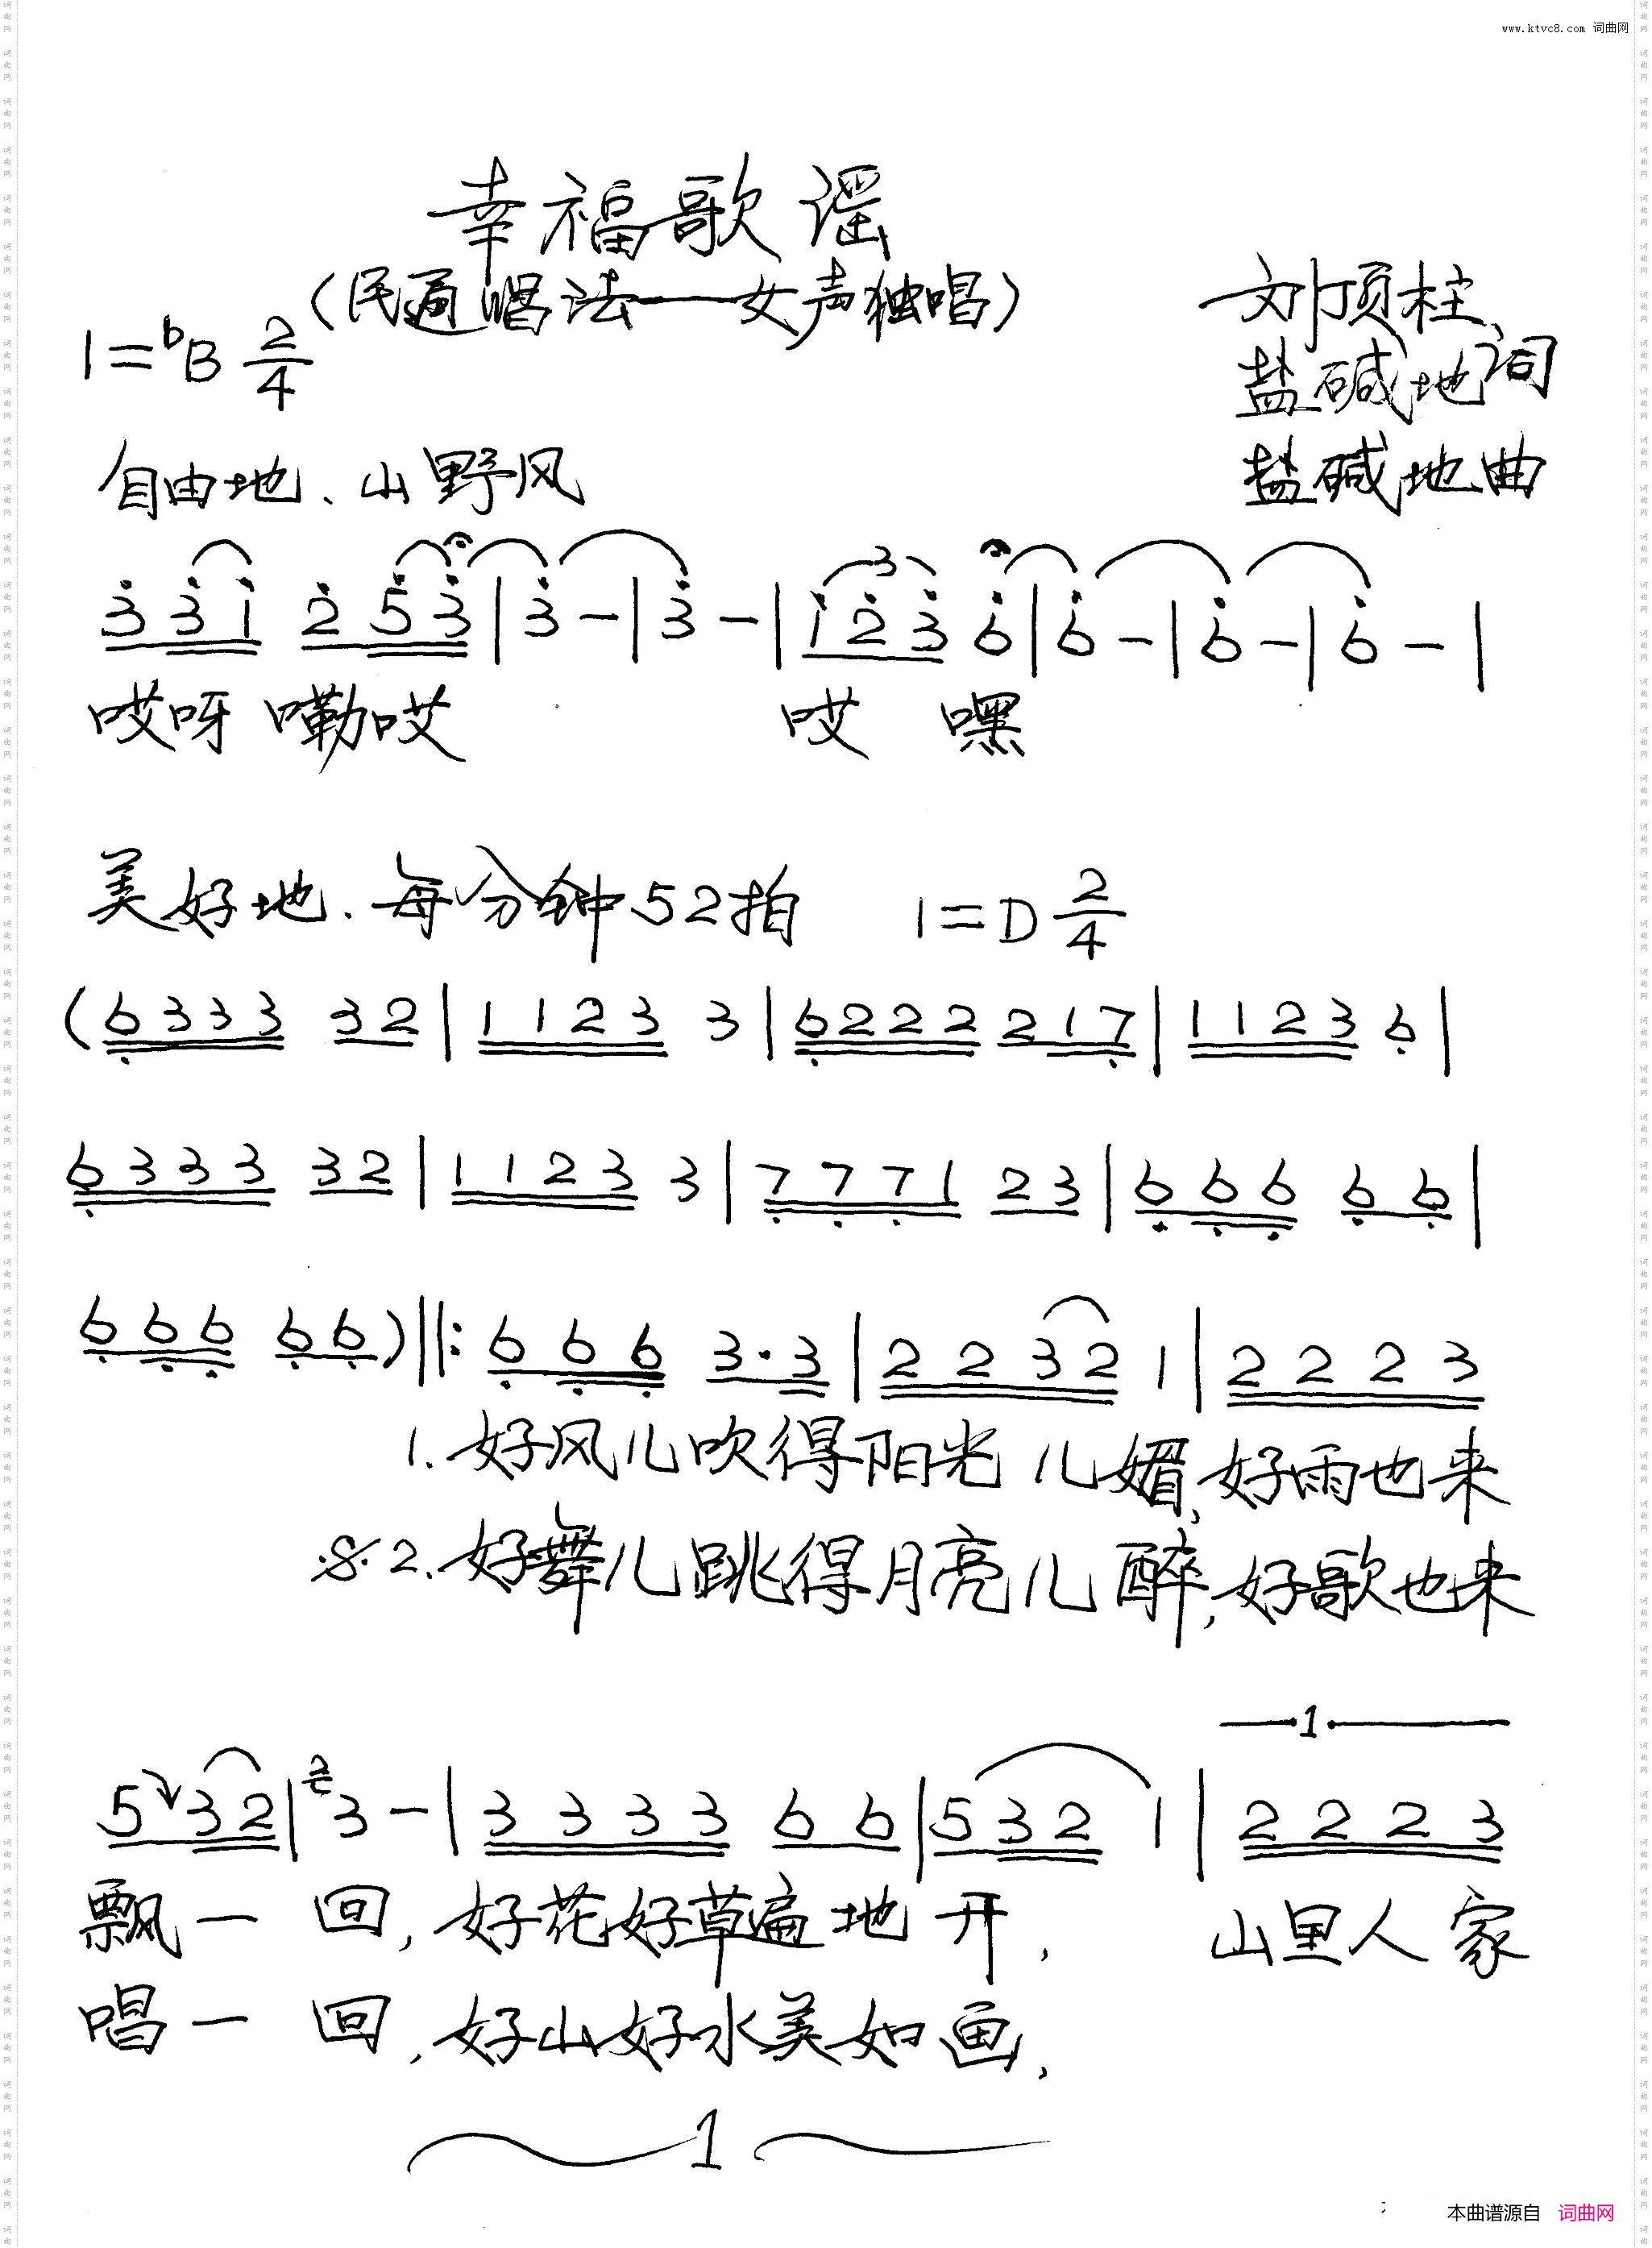 www.ktvc8.com 词曲网
幸福歌谣
(民通唱法——女声独唱)
刘顶柱、
1=bB 2/4
盐碱地词
自由地、山野风
盐碱地曲
3 3 1 2 5 3 | 3 - | 3 - | 1 2 3 6 | 6 - | 6 - | 6 - |
哎呀 嘞哎 哎 嘿
美好地、每分钟52拍 1=D 2/4
(6333 32 | 1123 3 | 6222 217 | 1123 6 |
6333 32 | 1123 3 | 7771 23 | 666 66 |
666 66) ||: 666 3·3 | 2232 1 | 2223
1.好风儿吹得阳光儿媚,好雨也来
2.好舞儿跳得月亮儿醉,好歌也来
1
5 32 | 2 3 - | 3333 66 | 532 1 | 2223
飘一回,好花好草遍地开, 山里人家
唱一回,好山好水美如画,
1
本曲谱源自 词曲网